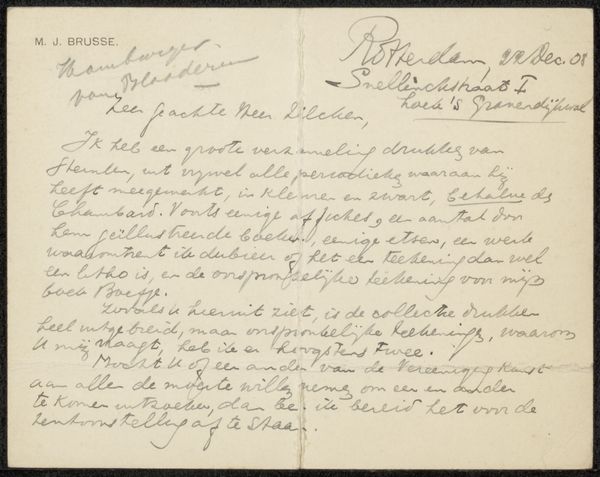 M. J. BRUSSE.
Rotterdam, 22 Dec. 08
Snellinckstraat I
hoek 's Gravendijkwal
Hamburger
van Blaaderen
Zeer geachte Heer Zilcken,
Ik heb een groote verzameling drukken van
Steinlen, uit vrijwel alle periodieken waaraan hij
heeft meegewerkt, in kleuren en zwart, behalve de
Chambard. Voorts eenige affiches, een aantal door
hem geïllustreerde boeken, eenige etsen, een werk
waaromtrent ik dubieer of het een teekening dan wel
een litho is, en de oorspronkelijke teekening voor mijn
boek Boefje.
Zooals u hieruit ziet, is de collectie drukken
heel uitgebreid, maar oorspronkelijke teekeningen, waarom
U mij vraagt, heb ik er hoogstens twee.
Mocht U of een ander van de Vereeniging Kunst
aan allen de moeite willen nemen om een en ander
te komen uitzoeken, dan ben ik bereid het voor de
tentoonstelling af te staan.